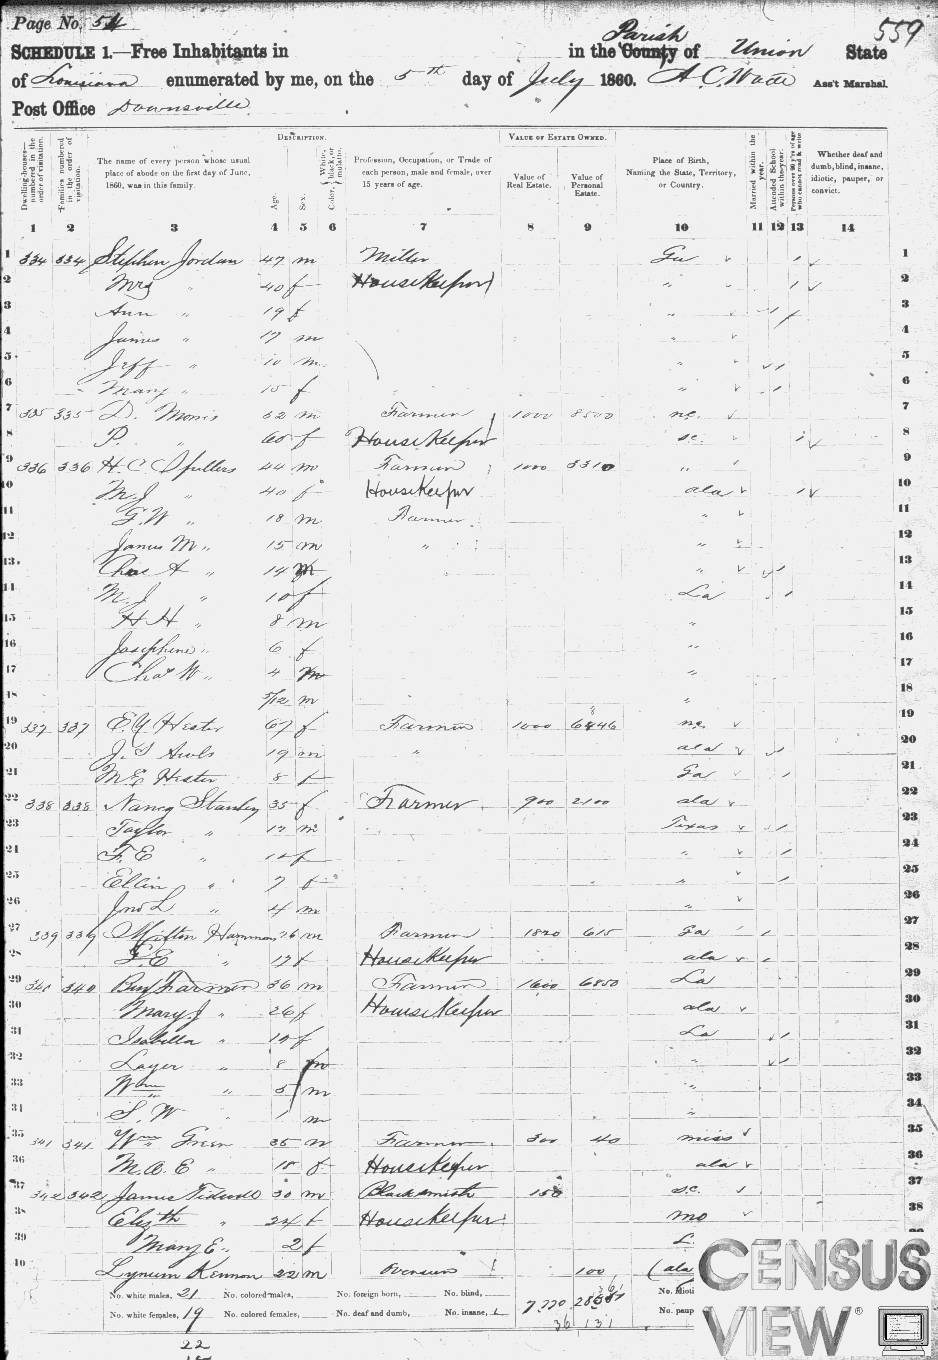 Page No. 54
559
SCHEDULE 1.—Free Inhabitants in in the County Parish of Union State
of Louisiana enumerated by me, on the 5th day of July 1860. A. C. Wade Ass't Marshal.
Post Office Downsville
Dwelling-houses—numbered in the order of visitation.
Families numbered in the order of visitation.
The name of every person whose usual place of abode on the first day of June, 1860, was in this family.
DESCRIPTION.
Age.
Sex.
Color, White, black, or mulatto.
Profession, Occupation, or Trade of each person, male and female, over 15 years of age.
VALUE OF ESTATE OWNED.
Value of Real Estate.
Value of Personal Estate.
Place of Birth, Naming the State, Territory, or Country.
Married within the year.
Attended School within the year.
Persons over 20 y'rs of age who cannot read & write
Whether deaf and dumb, blind, insane, idiotic, pauper, or convict.
1 2 3 4 5 6 7 8 9 10 11 12 13 14
1 334 334 Stephen Jordan 47 m Miller Ga 1
2 Mrs " 40 f HouseKeeper " 2
3 Ann " 19 f " 3
4 James " 17 m " 4
5 Jeff " 10 m " 5
6 Mary " 15 f " 6
7 335 335 D. Morris 52 m Farmer 1000 8500 nc 7
8 P. " 60 f HouseKeeper sc 8
9 336 336 H. C Spillers 44 m Farmer 1000 3310 " 9
10 M. J " 40 f HouseKeeper ala 10
11 G. W " 18 m Farmer " 11
12 James M " 15 m " " 12
13 Chas A " 14 m " 13
14 M. J " 10 f La 14
15 H H " 8 m " 15
16 Josephine " 6 f " 16
17 Chas W " 4 m " 17
18 3/12 m " 18
19 337 337 E. Y. Hester 67 f Farmer 1000 6846 nc 19
20 J. S 19 m " ala 20
21 M E Hester 8 f Ga 21
22 338 338 Nancy Stanley 35 f Farmer 900 2100 ala 22
23 Taylor " 17 m Texas 23
24 F. E " 12 f " 24
25 Ellin " 7 f " 25
26 Jno L " 4 m " 26
27 339 339 Milton Hammons 26 m Farmer 1820 615 Ga 27
28 L. E " 17 f HouseKeeper ala 28
29 340 340 Benj Farmer 36 m Farmer 1600 6850 La 29
30 Mary J " 26 f HouseKeeper ala 30
31 Isabella " 10 f La 31
32 Layer " 8 m " 32
33 Wm " 5 m " 33
34 S. W " 1 m " 34
35 341 341 Wm Green 35 m Farmer 300 40 miss 35
36 M. A. E " 18 f HouseKeeper ala 36
37 342 342 James Tidwell 30 m Blacksmith 150 sc 37
38 Elizth " 24 f HouseKeeper mo 38
39 Mary E " 2 f L. 39
40 Lynum Kennon 22 m Overseer 100 (ala
No. white males, 21 No. colored males, No. foreign born, No. blind,
No. white females, 19 No. colored females, No. deaf and dumb, No. insane,
7,770
36 131
No. idioti
No. paup
22
CENSUS
VIEW®